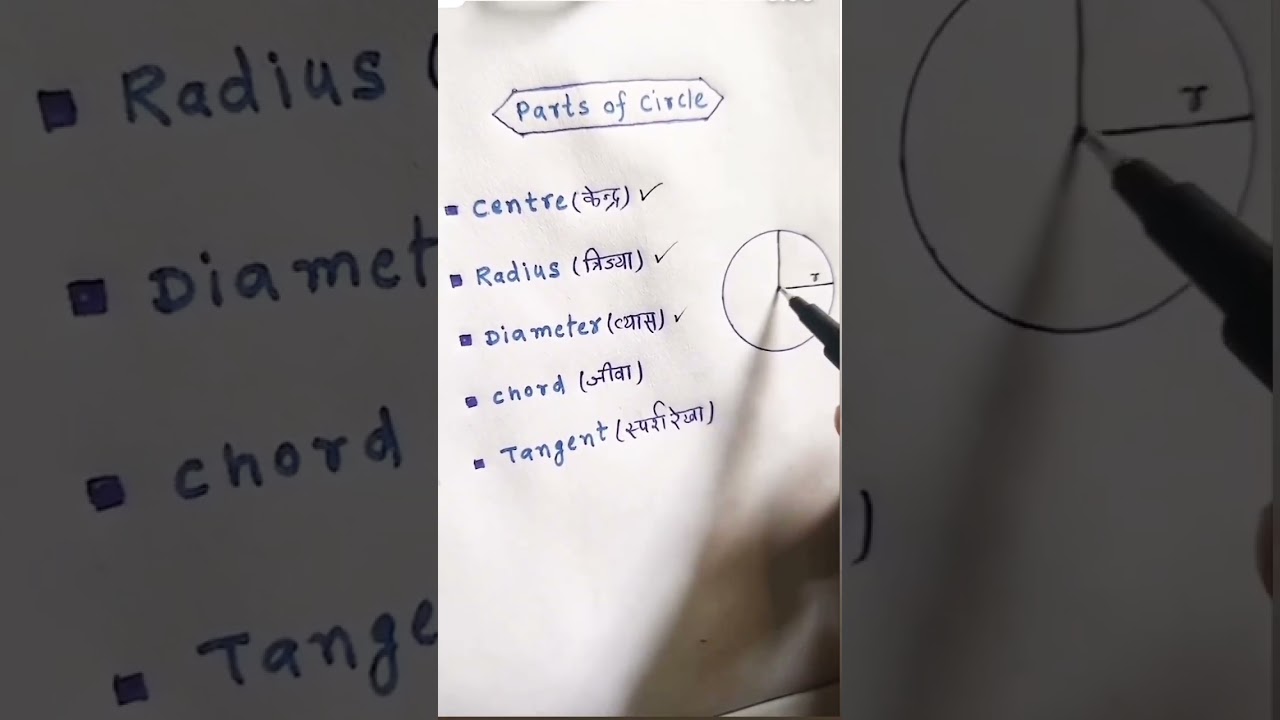 Parts of Circle
Centre (केन्द्र) ✓
Radius (त्रिज्या) ✓
Diameter (व्यास) ✓
Chord (जीवा)
Tangent (स्पर्श रेखा)
r